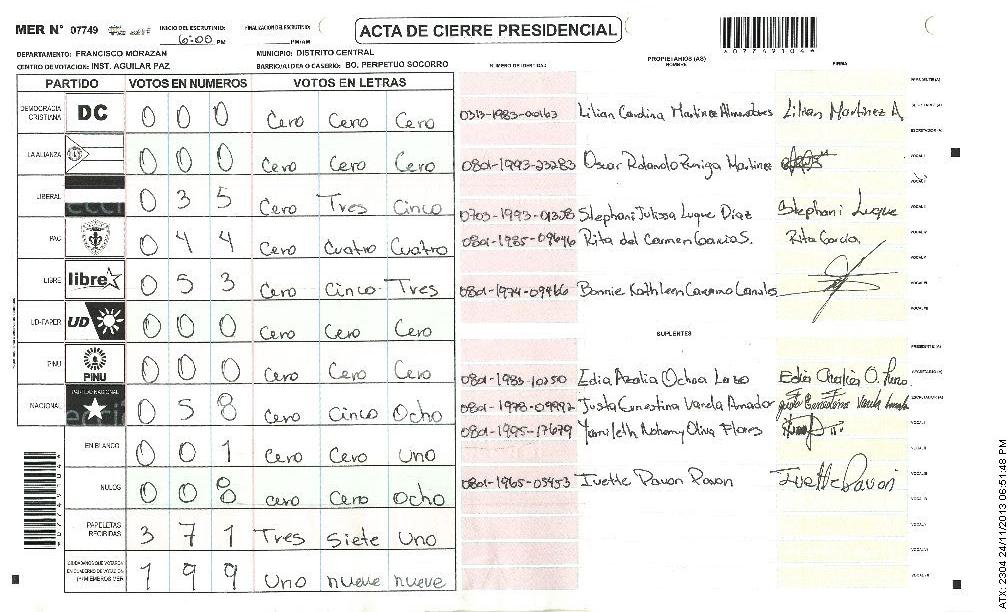 MER N° 07749 INICIO DEL ESCRUTINIO: 6:00 PM FINALIZACION DEL ESCRUTINIO: PM/AM
ACTA DE CIERRE PRESIDENCIAL
DEPARTAMENTO: FRANCISCO MORAZAN MUNICIPIO: DISTRITO CENTRAL
CENTRO DE VOTACION: INST. AGUILAR PAZ BARRIO/ALDEA O CASERIO: BO. PERPETUO SOCORRO
PARTIDO VOTOS EN NUMEROS VOTOS EN LETRAS
DEMOCRACIA CRISTIANA DC 0 0 0 Cero Cero Cero
LA ALIANZA 0 0 0 Cero Cero Cero
LIBERAL 0 3 5 Cero Tres Cinco
PAC 0 4 4 Cero Cuatro Cuatro
LIBRE libre 0 5 3 Cero Cinco Tres
UD-FAPER UD 0 0 0 Cero Cero Cero
PINU PINU 0 0 0 Cero Cero Cero
NACIONAL 0 5 8 Cero Cinco Ocho
EN BLANCO 0 0 1 Cero Cero Uno
NULOS 0 0 8 Cero Cero Ocho
PAPELETAS RECIBIDAS 3 7 1 Tres Siete Uno
CIUDADANOS QUE VOTARON 1 9 9 Uno nueve nueve
NUMERO DE IDENTIDAD PROPIETARIOS (AS) NOMBRE FIRMA
0313-1983-00163 Lilian Carolina Martinez Lilian Martinez A.
0801-1993-23283 Oscar Rolando Zuniga Martinez
0703-1993-01328 Stephani Julissa Luque Diaz Stephani Luque
0801-1985-09646 Rita del Carmen Garcia S. Rita Garcia
0801-1974-09466 Bonnie Kathleen Canales
SUPLENTES
0801-1983-10250 Edia Azalia Ochoa Lazo
0801-1978-09992 Justa Ernestina Varela Amador
0801-1995-17679 Yamileth Nohemy Oliva Flores
0801-1965-05453 Ivette Pavon Pavon Ivette Pavon
ATX: 2304 24/11/2013 06:51:48 PM